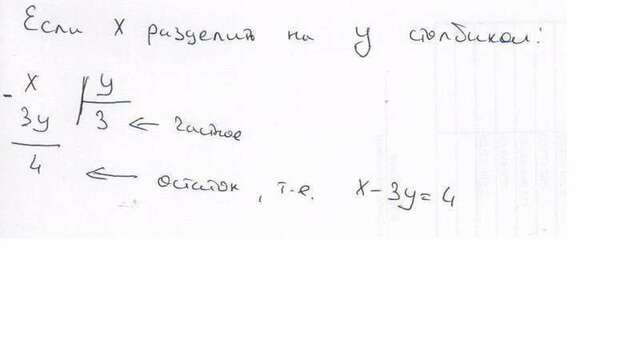 Если x разделить на y столбиком:
- x | y
3y 3 ← частное
4 ← остаток, т.е. x - 3y = 4